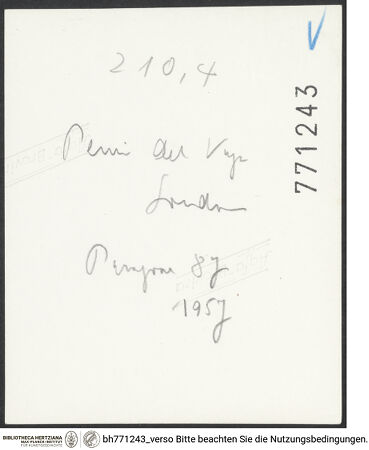 210,4
771243
Perin del Vaga
London
Paragone 87
1957
BIBLIOTHECA HERTZIANA
MAX-PLANCK-INSTITUT
FÜR KUNSTGESCHICHTE
bh771243_verso Bitte beachten Sie die Nutzungsbedingungen.